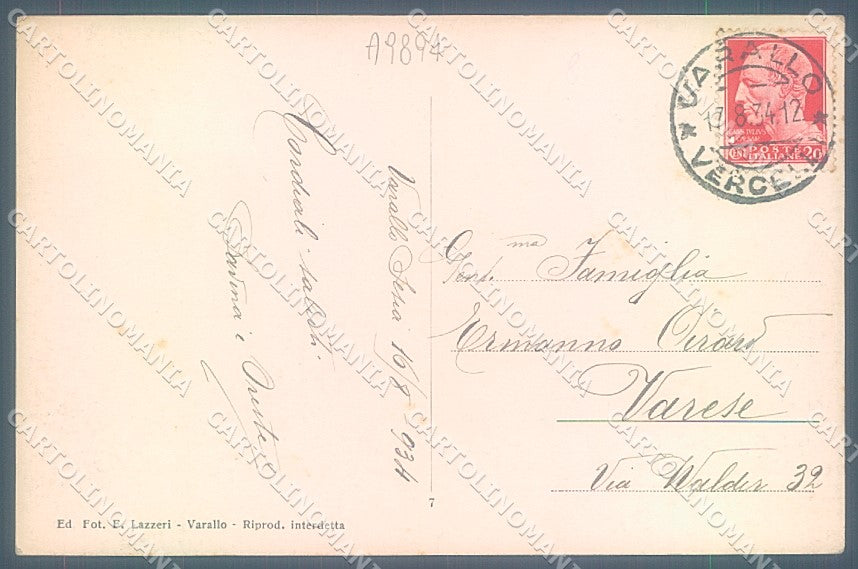 A9894
VARALLO
17.8.34.12
VERCELLI
POSTE
ITALIANE 20
Varallo Sesia 16/8 934
Cordiali saluti
e Oreste
Gent.ma Famiglia
Ermanno
Varese
Via Walder 32
7
Ed. Fot. E. Lazzeri - Varallo - Riprod. interdetta
CARTOLINOMANIA